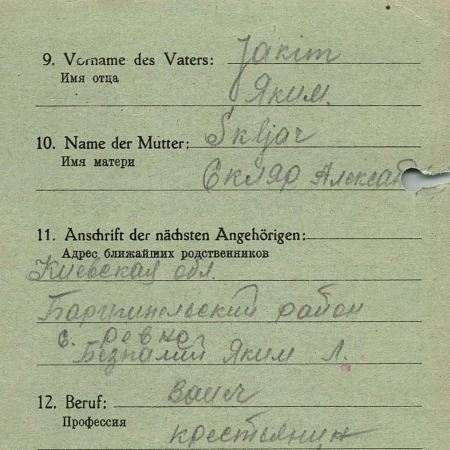 9. Vorname des Vaters: Jakim
Имя отца
Яким.
10. Name der Mutter: Skljar
Имя матери
Скляр Алексан
11. Anschrift der nächsten Angehörigen:
Адрес ближайших родственников
Киевская обл.
район
с. Ревно
Безпалий Яким Л.
12. Beruf: Bauer
Профессия
крестьянин